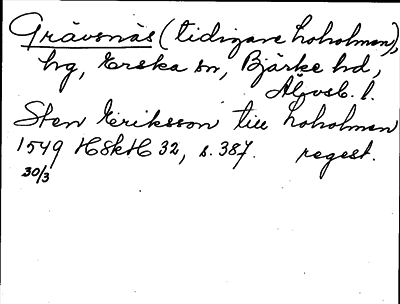 Grävsnäs (tidigare Loholmen),
hg, Erska sn, Bjärke hd,
Älvsb. l.
Sten Eriksson till Loholmen
1549 HSkH 32, s. 387. regest.
30/3